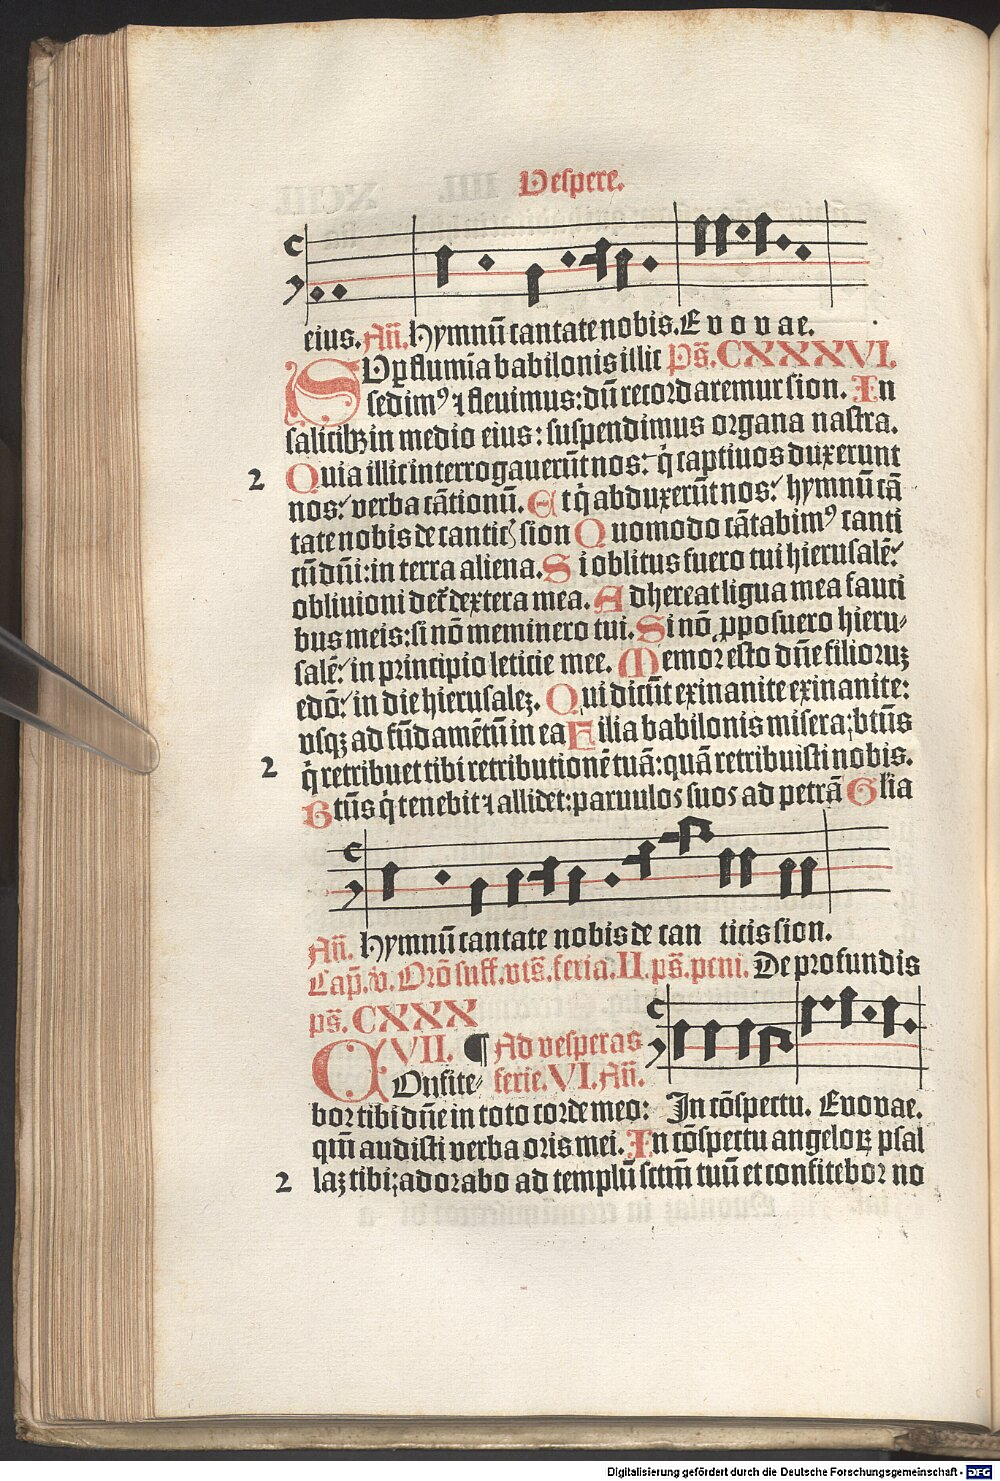 Vespere.
eius. Añ. Hymnū cantate nobis. E v o v a e.
SVꝑ flumīa babilonis illic Ps̄. CXXXVI.
sedimꝰ ⁊ fleuimus: dū recordaremur sion. In
salicibꝫ in medio eius: suspendimus organa nostra.
2 Quia illic interrogauerūt nos: q̇ captiuos duxerunt
nos: verba cātionū. Et q̇ abduxerūt nos: hymnū cā
tate nobis de cantic̄ sion Quomodo cātabimꝰ canti
cū dn̄i: in terra aliena. Si oblitus fuero tui hierusalē:
obliuioni det̄ dextera mea. Adhereat ligua mea fauci
bus meis: si nō meminero tui. Si nō ꝓposuero hieru⸗
salē: in principio leticie mee. Memor esto dn̄e filioruꝫ
edō: in die hierusaleꝫ. Qui dicūt exinanite exinanite:
vsqꝫ ad fūdamētū in ea Filia babilonis misera: btūs
2 q̇ retribuet tibi retributionē tuā: quā retribuisti nobis.
Btūs q̇ tenebit ⁊ allidet: paruulos suos ad petrā Glīa
Añ. Hymnū cantate nobis de can ticis sion.
Cap̄. v. Orō suff. vts̄. feria. II. ps̄. peni. De profundis
ps̄. CXXX
VII. ¶ Ad vesperas
COnfite⸗ ferie. VI. Añ.
bor tibi dn̄e in toto corde meo: In cōspectu. Evovae.
qm̄ audisti verba oris mei. In cōspectu angeloꝝ psal
2 laꝫ tibi: adorabo ad templū sctm̄ tuū et confitebor no
Digitalisierung gefördert durch die Deutsche Forschungsgemeinschaft - DFG